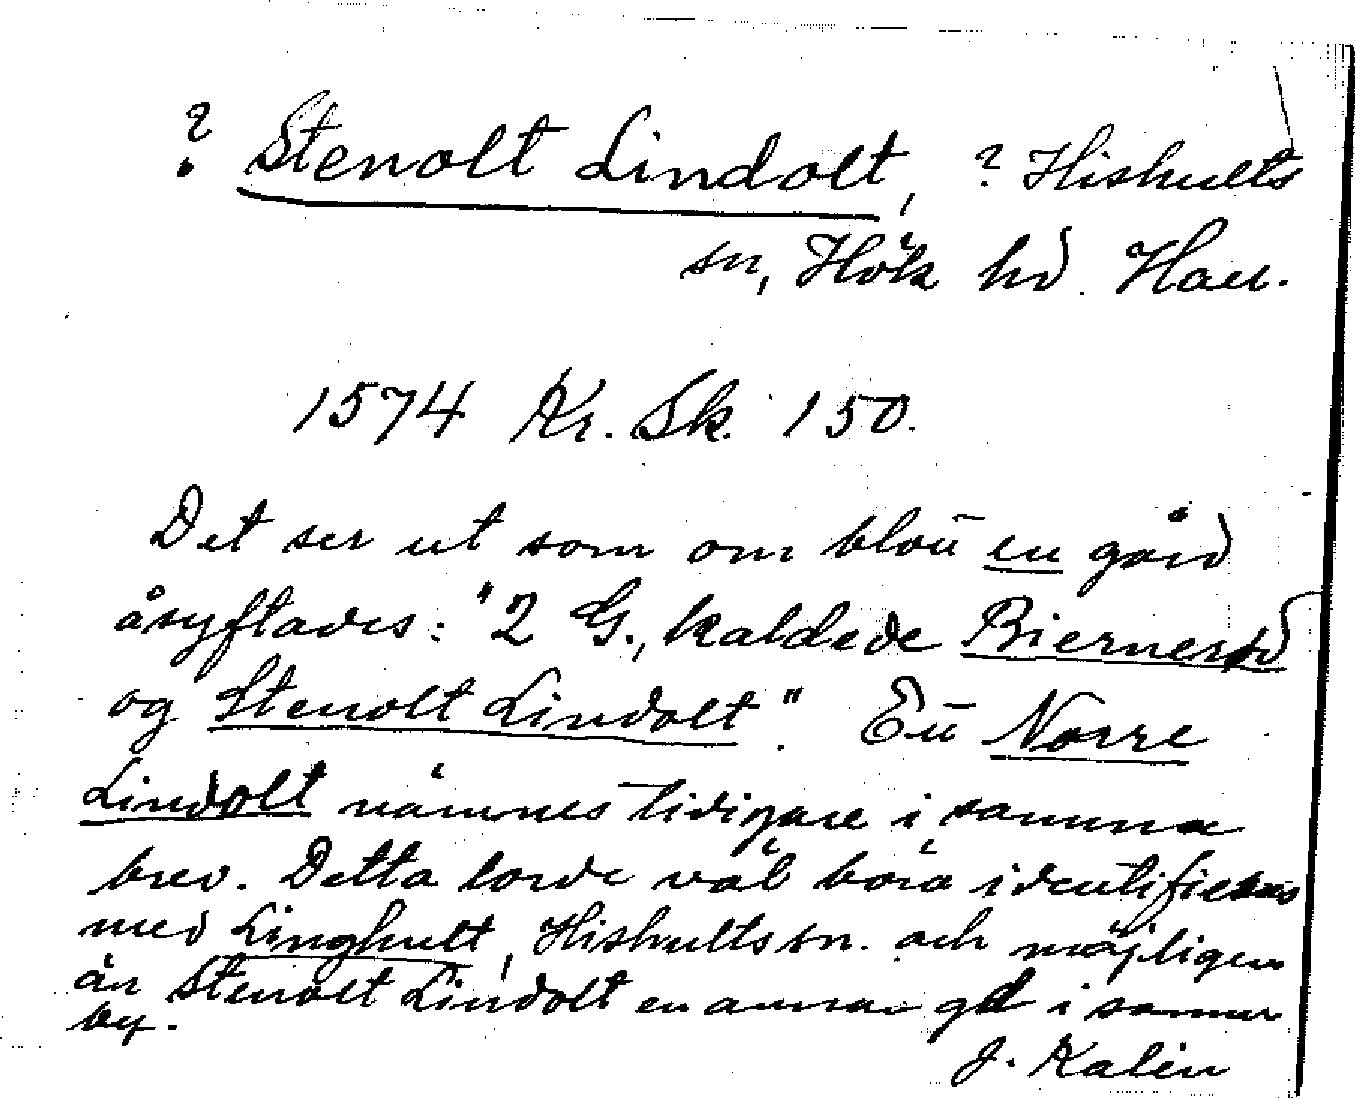 ? Stenolt Lindolt, ? Hishults
sn, Höks hd. Hall.
1574 Kr. Sk. 150.
Det ser ut som om blott en gård
åsyftades: "2 G., kaldede Biernerød
og Stenolt Lindolt". Ett Norre
Lindolt nämnes tidigare i samma
brev. Detta torde väl böra identifieras
med Linghult, Hishults sn. och möjligen
är Stenolt Lindolt en annan gd i samma
by.
J. Kalén